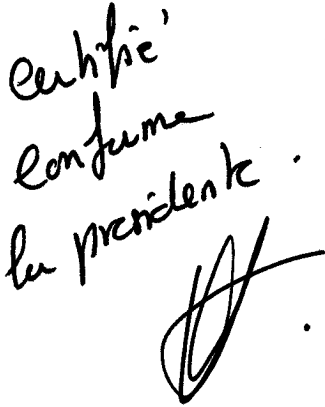 certifié
conforme
la presidente.